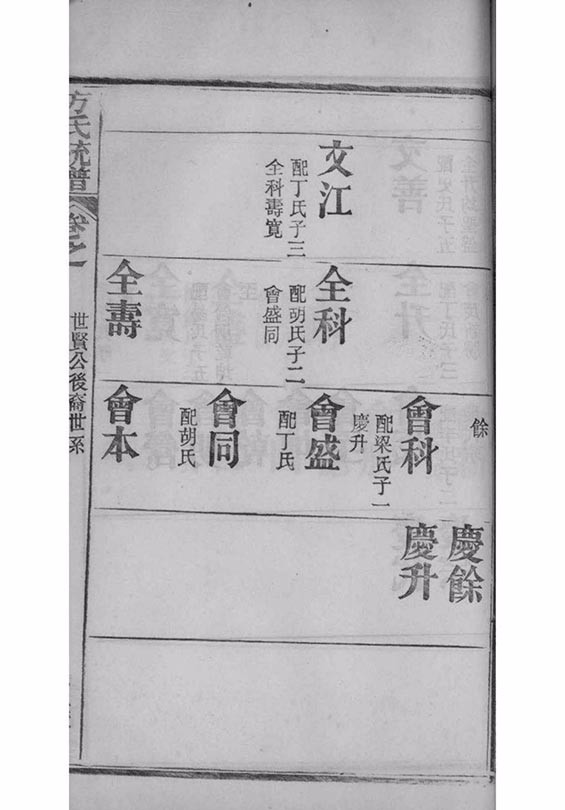 文江
配丁氏子三
全科壽寬
全科
配胡氏子二
會盛同
全壽
餘
會科
配梁氏子一
慶升
會盛
配丁氏
會同
配胡氏
會本
慶餘
慶升
方氏統譜
卷之一
世賢公後裔世系